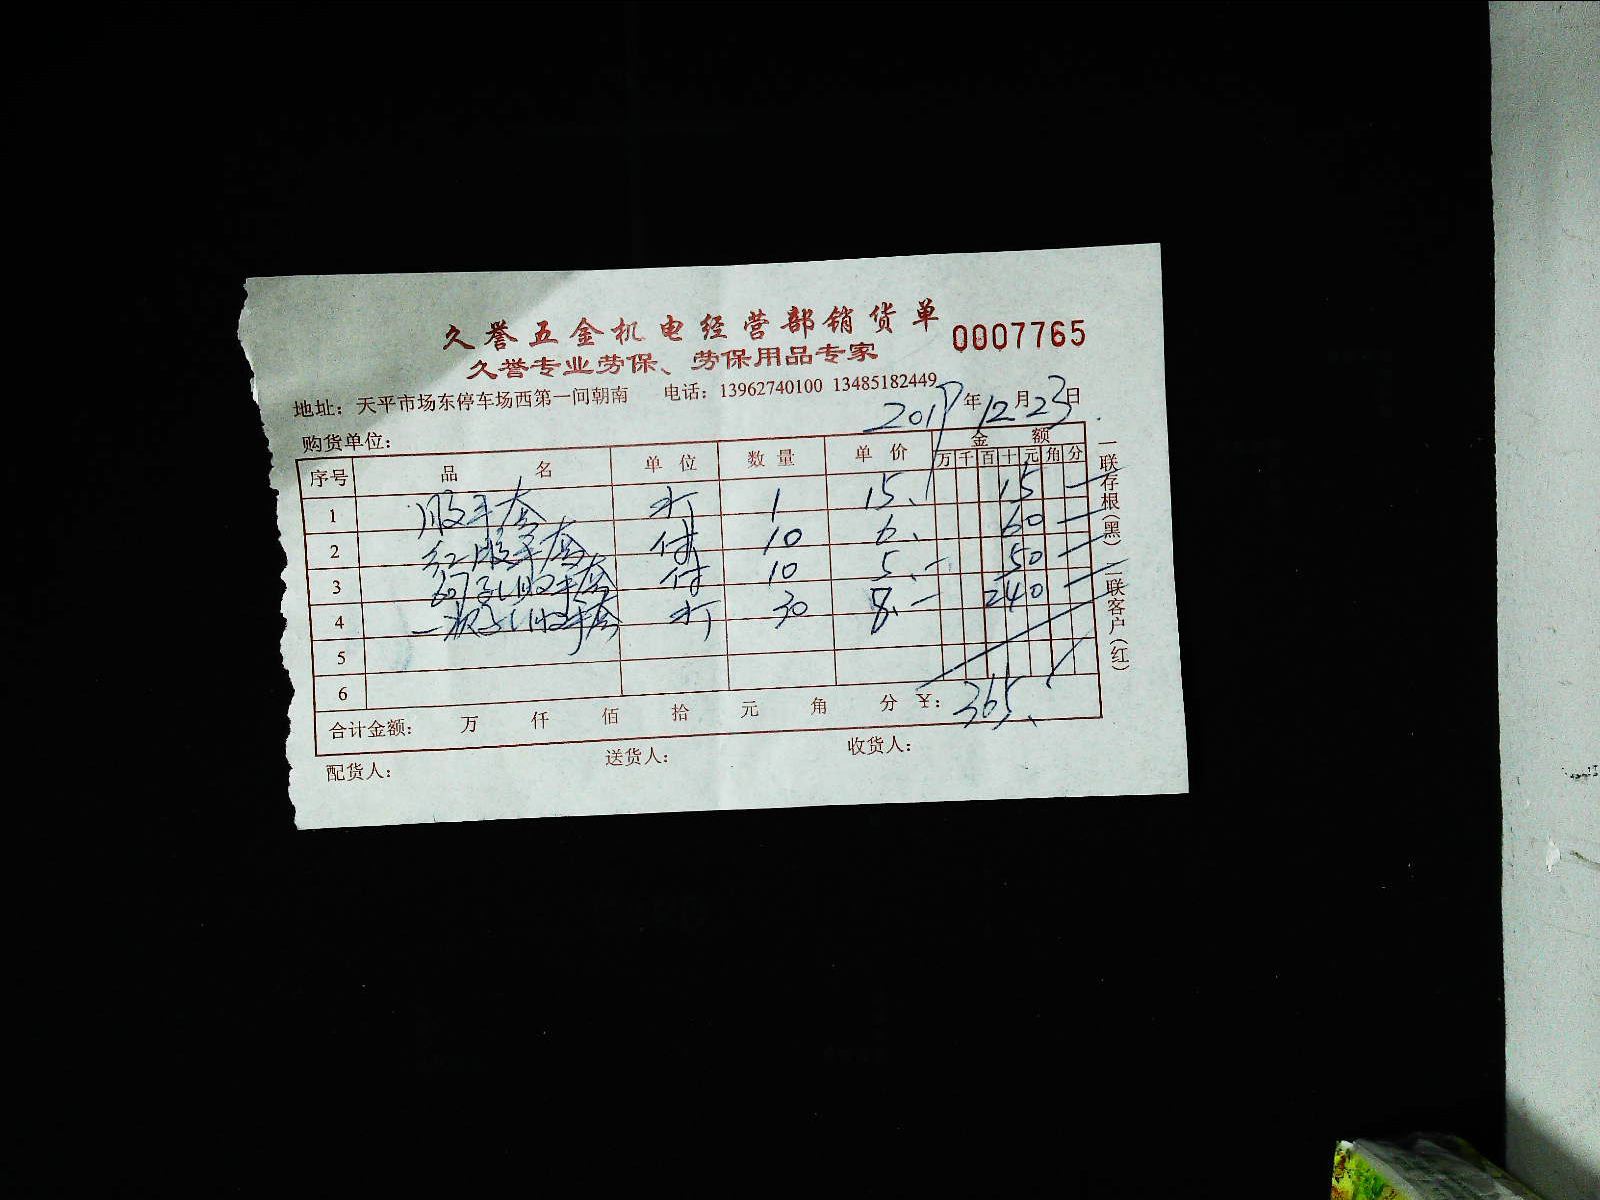 久誉五金机电经营部销货单 0007765
久誉专业劳保、劳保用品专家
地址：天平市场东停车场西第一间朝南 电话：13962740100 13485182449
2017年12月23日
购货单位：
序号 品名 单位 数量 单价 金额
万 千 百 十 元 角 分
1 胶手套 打 1 15、 15
2 红胶手套 付 10 6、 60
3 胶手套 付 10 5、- 50
4 胶手套 打 30 8、- 240
5
6
合计金额： 万 仟 佰 拾 元 角 分 ¥：365、
配货人： 送货人： 收货人：
一联存根（黑） 二联客户（红）